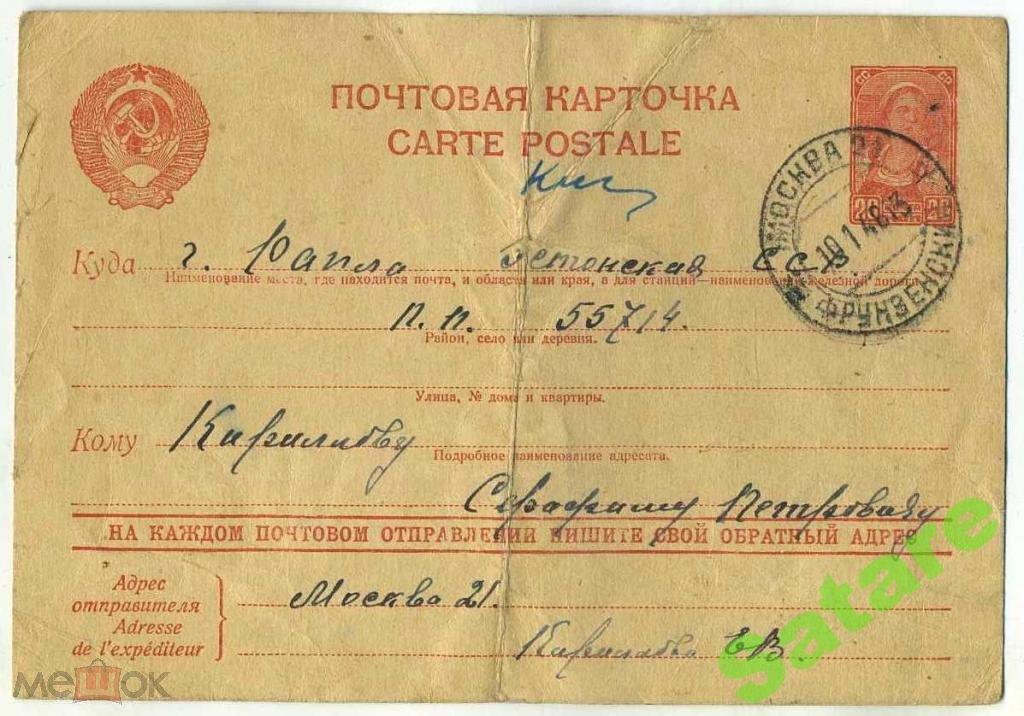 ПОЧТОВАЯ КАРТОЧКА
CARTE POSTALE
СС СР
20 20
МОСКВА
10 1 48 13
ФРУНЗЕНСКИЙ
Куда г. Рапла Эстонская ССР
Наименование места, где находится почта, и область или края, а для станции—наименование железной дороги.
п. п. 55714.
Район, село или деревня.
Улица, № дома и квартиры.
Кому Кириллову
Подробное наименование адресата.
Серафиму Петровичу
НА КАЖДОМ ПОЧТОВОМ ОТПРАВЛЕНИИ ПИШИТЕ СВОЙ ОБРАТНЫЙ АДРЕС
Адрес
отправителя
Adresse
de l'expéditeur
Москва 21.
Кириллова ЕВ.
мешок
satare